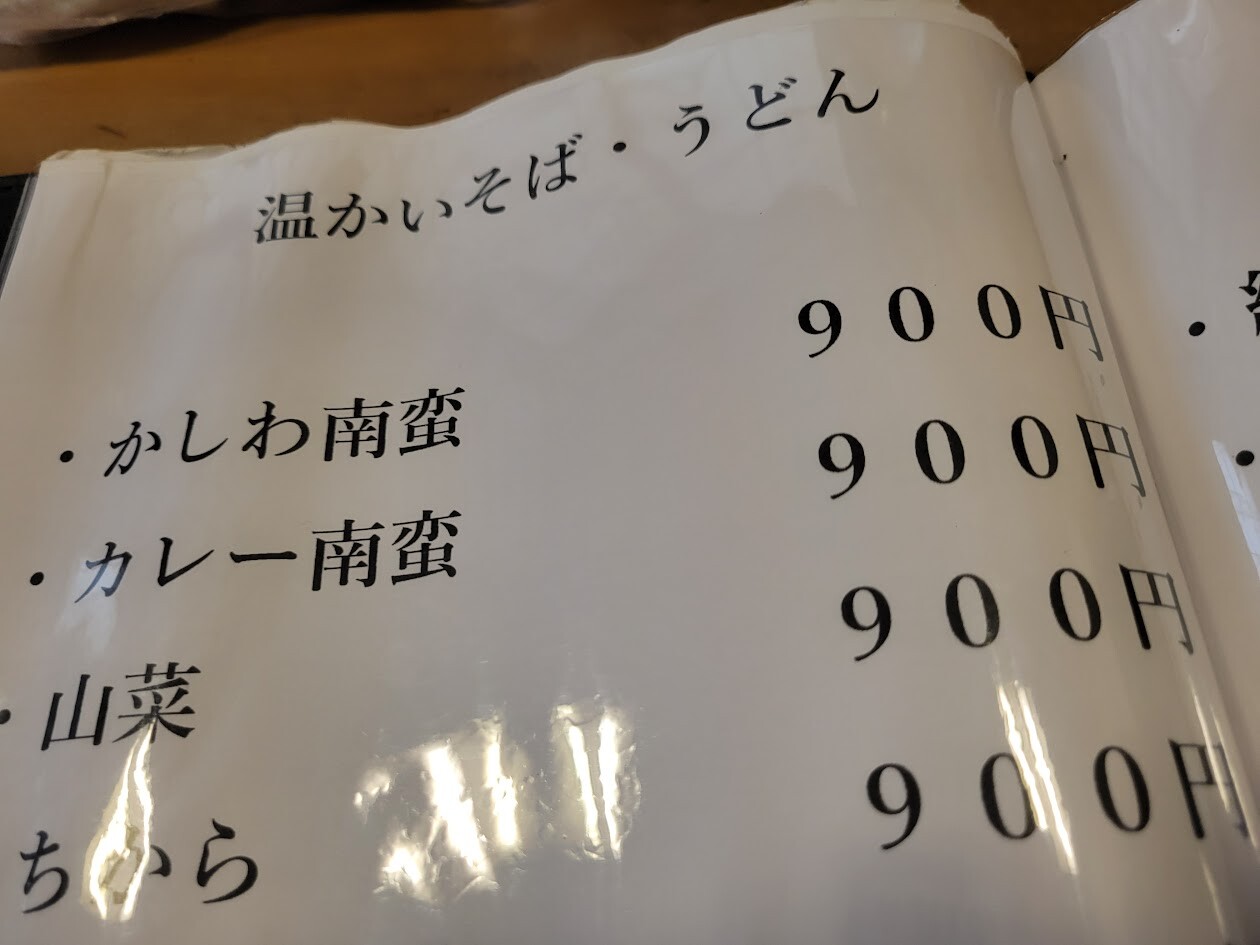 温かいそば・うどん
・かしわ南蛮 ９００円
・カレー南蛮 ９００円
・山菜 ９００円
ちから ９００円